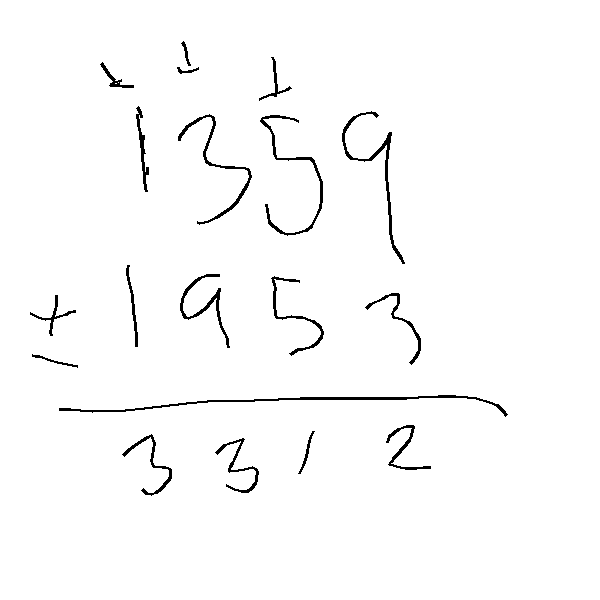 1 1 1
1359
± 1953
3312